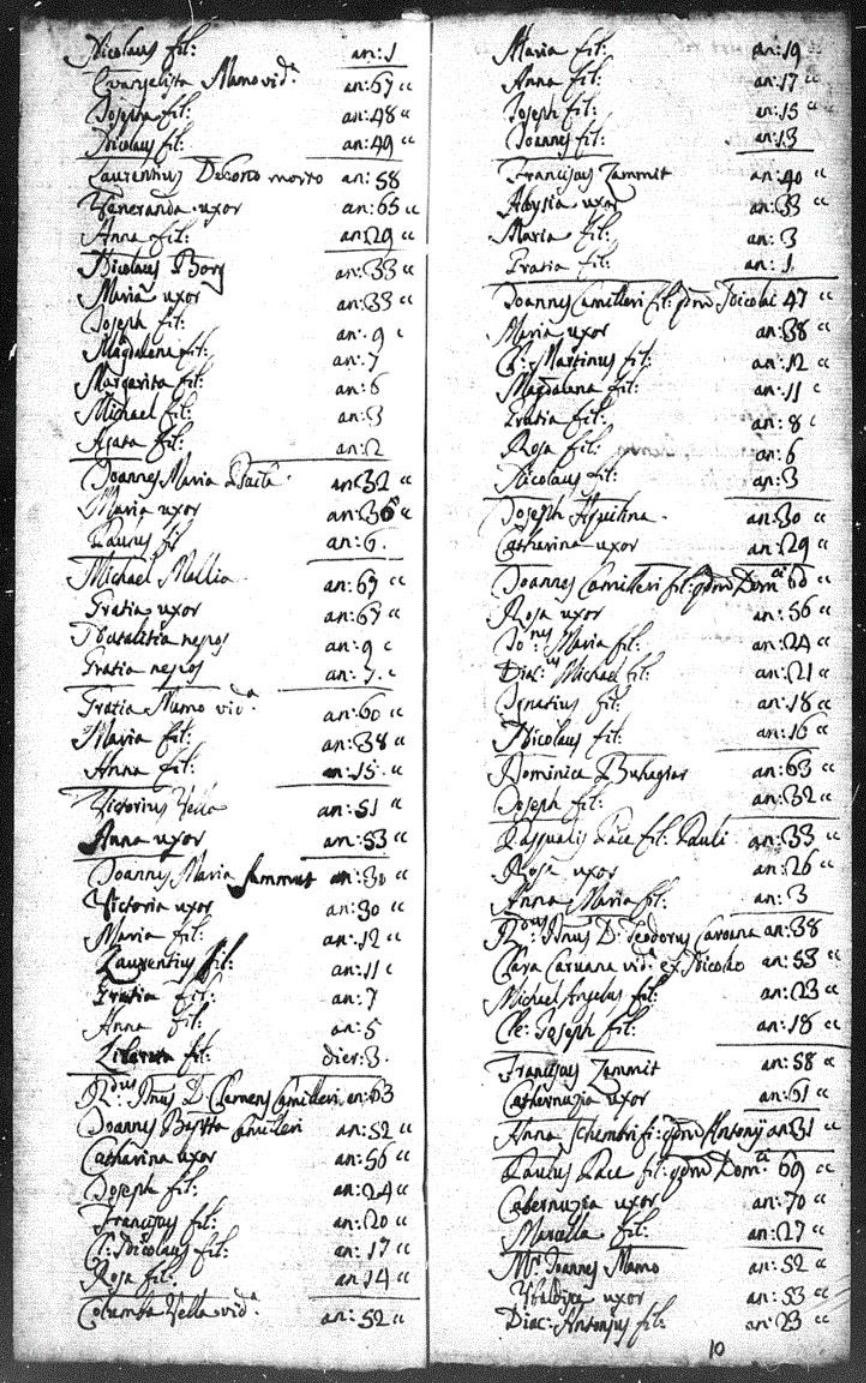 Nicolaus fil: an: 1
Evangelista Mamo vid:a an: 67 cc
Josepha fil: an: 48 cc
Nicolaus fil: an: 49 cc
Laurentius DeCorto morto an: 58
Veneranda uxor an: 65 cc
Anna fil: an: 29 cc
Nicolaus Borg an: 33 cc
Maria uxor an: 33 cc
Joseph fil: an: 9 c
Magdalena fil: an: 7
Margarita fil: an: 6
Michael fil: an: 3
Agata fil: an: 2
Joannes Maria an: 32 cc
Maria uxor an: 36 cc
Paulus fil an: 6.
Michael Mallia an: 67 cc
Gratia uxor an: 67 cc
Natalitia nepos an: 9 c
Gratia nepos an: 7. c
Gratia Mamo vid:a an: 60 cc
Maria fil: an: 38 cc
Anna fil: an: 15. cc
Victorius Vella an: 51 cc
Anna uxor an: 53 cc
Joannes Maria Sammut an: 30 cc
Victoria uxor an: 30 cc
Maria fil: an: 12 cc
Laurentius fil: an: 11 c
Gratia fil: an: 7
Anna fil: an: 5
fil: dier: 3.
R:dus Dnus D. Clemens Camilleri an: 63
Joannes Bap'tta Camilleri an: 52 cc
Catharina uxor an: 56 cc
Joseph fil: an: 24 cc
Franciscus fil: an: 20 cc
Cl: Nicolaus fil: an: 17 cc
Rosa fil: an 14 cc
Columba Vella vid:a an: 52 cc
Maria fil: an: 19 cc
Anna fil: an: 17 cc
Joseph fil: an: 15 cc
Joannes fil: an: 13
Franciscus Zammit an: 40 cc
Aloysia uxor an: 33 cc
Maria fil: an: 3
Gratia fil: an: 1.
Joannes Camilleri fil: qdm Nicolai 47 cc
Maria uxor an: 38 cc
Cl: Martinus fil: an: 12 cc
Magdalena fil: an: 11 c
Gratia fil: an: 8 c
Rosa fil: an: 6
Nicolaus fil: an: 3
Joseph Aquilina. an: 30 cc
Catharina uxor an: 29 cc
Joannes Camilleri fil: qdm Dom:ci 60 cc
Rosa uxor an: 56 cc
Jo:nes Maria fil: an: 24 cc
Diac:us Michael fil: an: 21 cc
Ignatius fil: an: 18 cc
Nicolaus fil: an: 16 cc
Dominica Buhagiar an: 63 cc
Joseph fil: an: 32 cc
Pasqualis Pace fil: Pauli an: 33 cc
Rosa uxor an: 26 cc
Anna Maria fil: an: 3
R:dus Dnus D: Teodorus Caroana an: 38
Clara Caruana vid:a ex Nicolao an: 53 cc
Michael Angelus fil: an: 23 cc
Cle: Joseph fil: an: 18 cc
Franciscus Zammit an: 58 cc
Cathernuzia uxor an: 61 cc
Anna Schembri fi: qdm Antonij an 31 cc
Paulus Pace fil: qdm Dom:ci 69 cc
Caternuzia uxor an: 70 cc
Marcella fil: an: 27 cc
Mr: Joannes Mamo an: 52 cc
Ubaldesca uxor an: 53 cc
Diac: Antonius fil: an: 23 cc
10